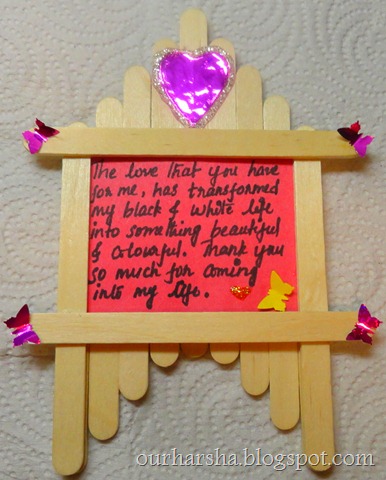 The love that you have
for me, has transformed
my black & white life
into something beautiful
& colourful. Thank you
so much for coming
into my life.
ourharsha.blogspot.com